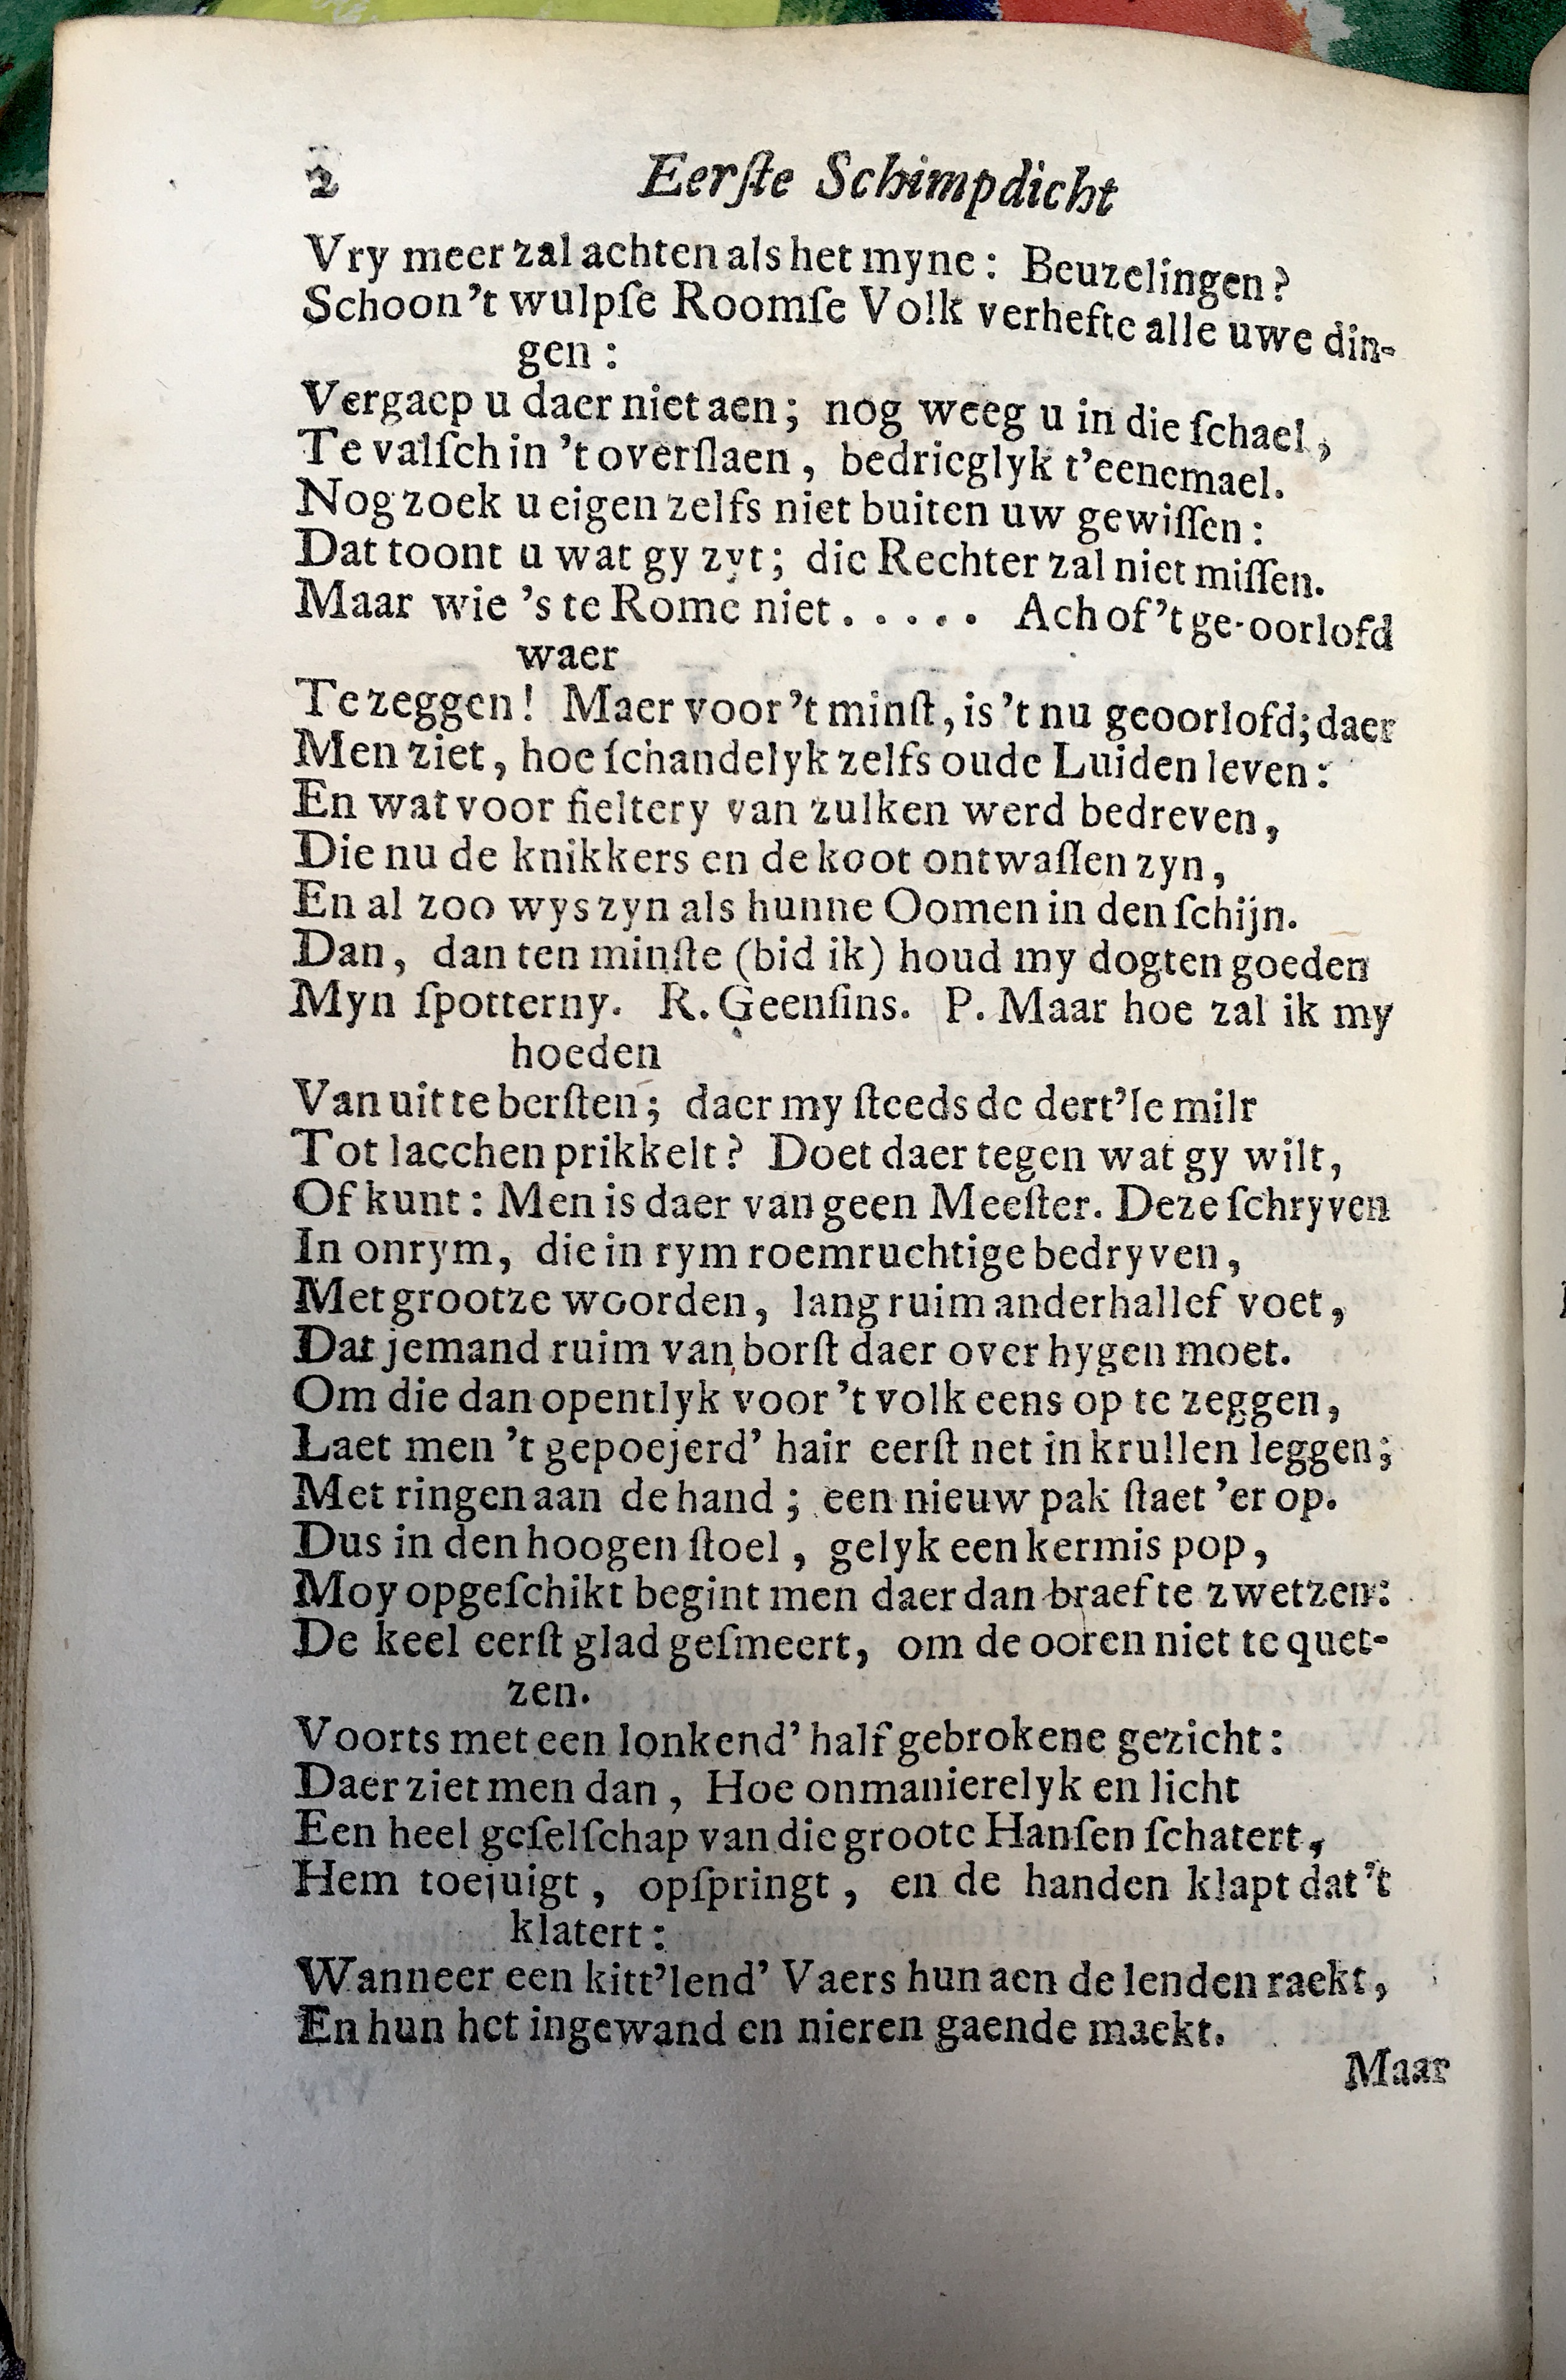 2 Eerſte Schimpdicht
Vry meer zal achten als het myne: Beuzelingen?
Schoon 't wulpſe Roomſe Volk verhefte alle uwe din-
gen:
Vergaep u daer niet aen; nog weeg u in die ſchael,
Te valſch in 't overſlaen, bedrieglyk t'eenemael.
Nog zoek u eigen zelfs niet buiten uw gewiſſen:
Dat toont u wat gy zyt; die Rechter zal niet miſſen.
Maar wie 's te Rome niet..... Ach of 't ge-oorlofd
waer
Te zeggen! Maer voor 't minſt, is 't nu geoorlofd; daer
Men ziet, hoe ſchandelyk zelfs oude Luiden leven:
En wat voor fieltery van zulken werd bedreven,
Die nu de knikkers en de koot ontwaſſen zyn,
En al zoo wys zyn als hunne Oomen in den ſchijn.
Dan, dan ten minſte (bid ik) houd my dogten goeden
Myn ſpotterny. R. Geenſins. P. Maar hoe zal ik my
hoeden
Van uit te berſten; daer my ſteeds de dert'le milt
Tot lacchen prikkelt? Doet daer tegen wat gy wilt,
Of kunt: Men is daer van geen Meeſter. Deze ſchryven
In onrym, die in rym roemruchtige bedryven,
Met grootze woorden, lang ruim anderhallef voet,
Dat jemand ruim van borſt daer over hygen moet.
Om die dan opentlyk voor 't volk eens op te zeggen,
Laet men 't gepoejerd' hair eerſt net in krullen leggen;
Met ringen aan de hand; een nieuw pak ſtaet 'er op.
Dus in den hoogen ſtoel, gelyk een kermis pop,
Moy opgeſchikt begint men daer dan braef te zwetzen:
De keel eerſt glad geſmeert, om de ooren niet te quet-
zen.
Voorts met een lonkend' half gebrokene gezicht:
Daer ziet men dan, Hoe onmanierelyk en licht
Een heel geſelſchap van die groote Hanſen ſchatert,
Hem toejuigt, opſpringt, en de handen klapt dat 't
klatert:
Wanneer een kitt'lend' Vaers hun aen de lenden raekt,
En hun het ingewand en nieren gaende maekt.
Maar